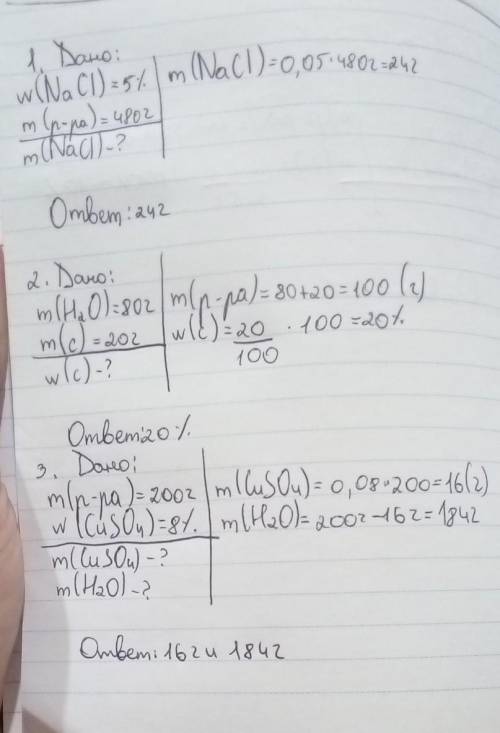 1. Дано:
w(NaCl)=5% m(NaCl)=0,05·480г=24г
m(р-ра)=480г
m(NaCl)-?
Ответ: 24г
2. Дано:
m(H₂O)=80г m(р-ра)=80+20=100 (г)
m(c)=20г w(c)=20/100 · 100=20%
w(c)-?
Ответ: 20%
3. Дано:
m(р-ра)=200г m(CuSO₄)=0,08·200=16(г)
w(CuSO₄)=8%. m(H₂O)=200г-16г=184г
m(CuSO₄)-?
m(H₂O)-?
Ответ: 16г и 184г